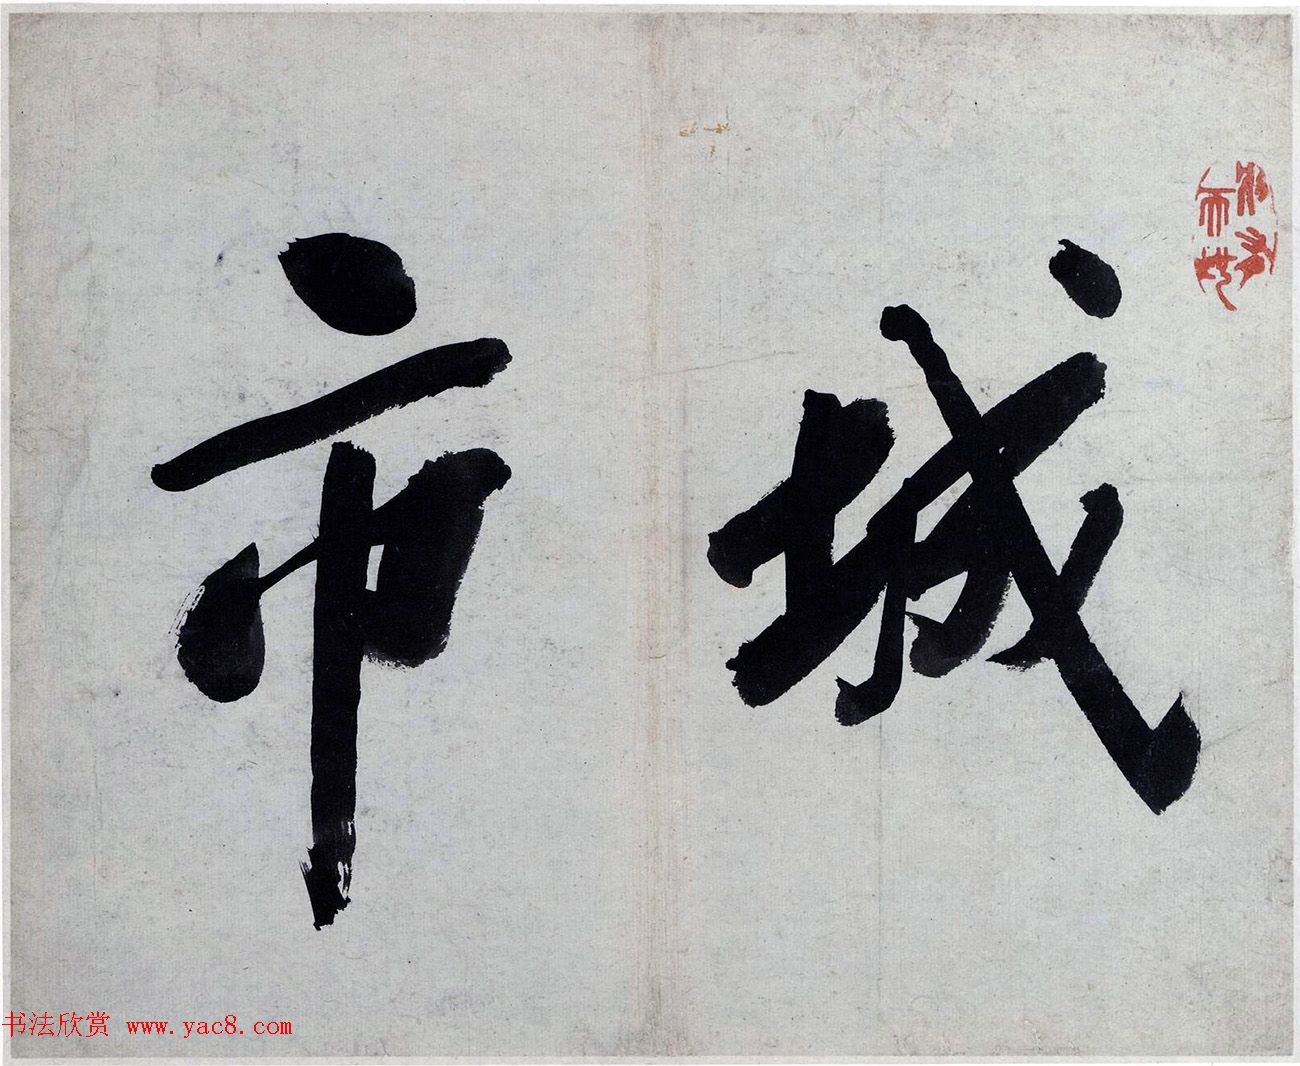 城市
书法欣赏 www.yac8.com